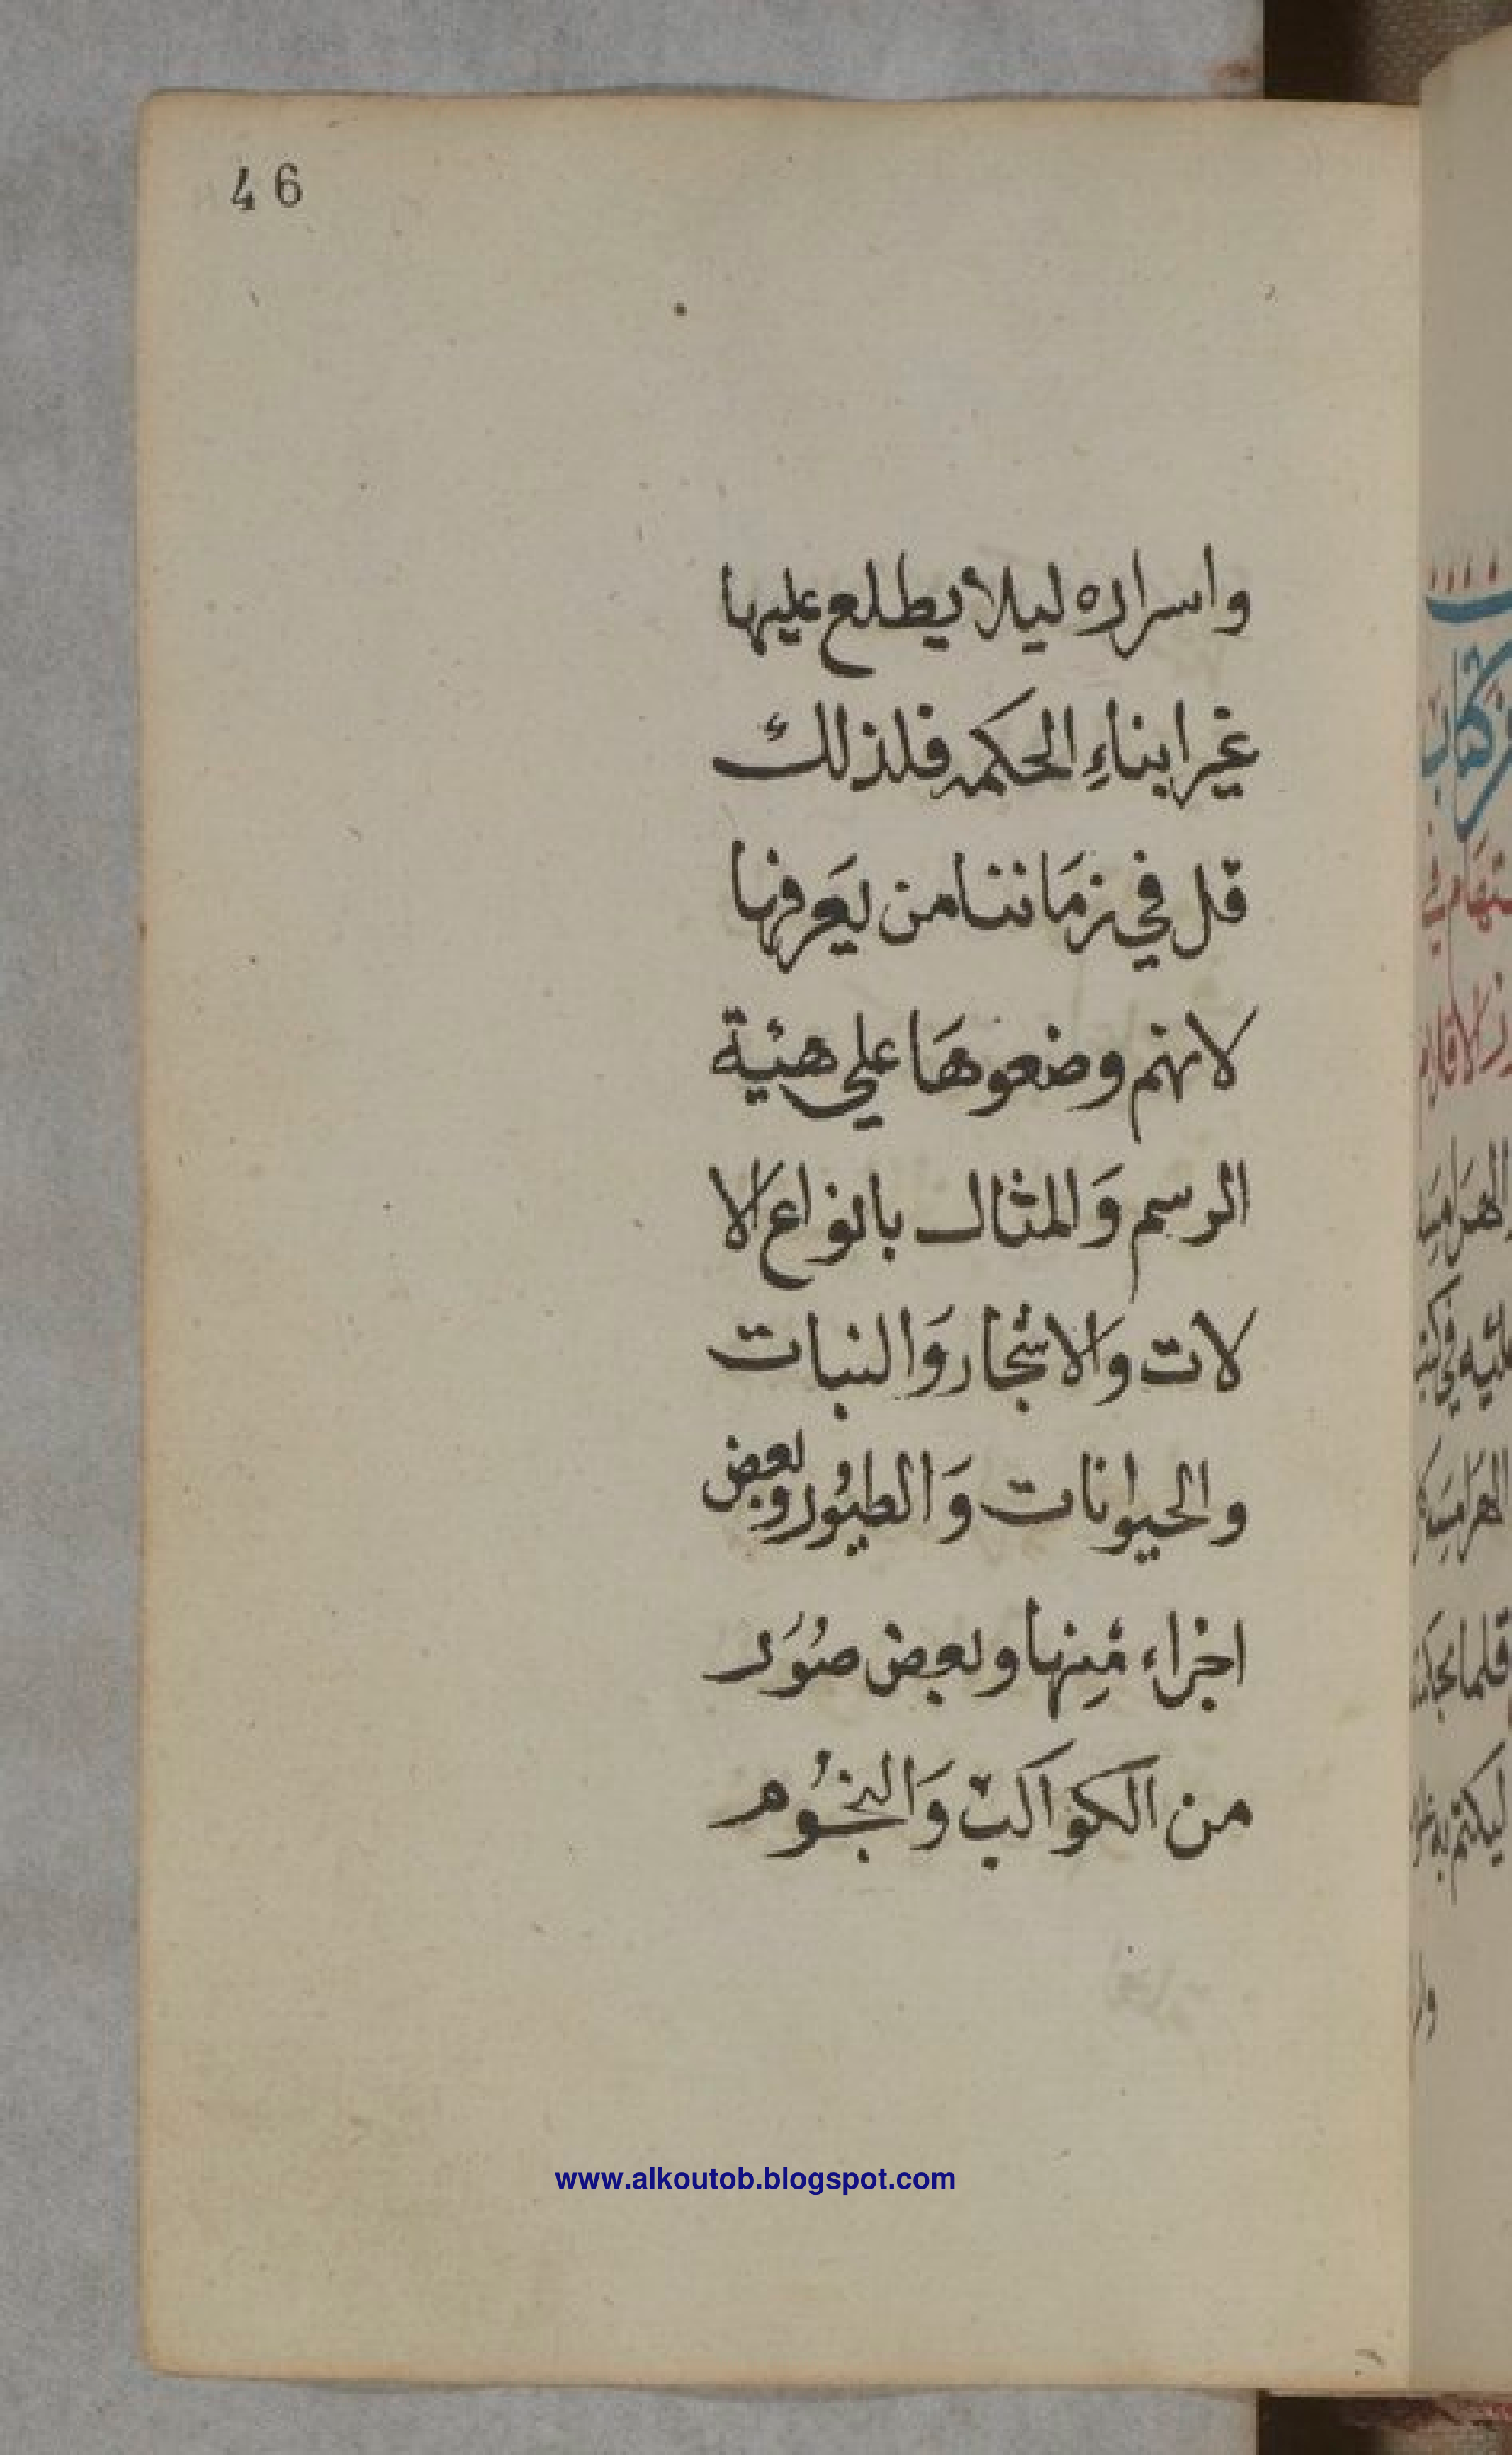 46
واسراره ليلا يطلع عليها
غير ابناءِ الحكمه فلذلك
قل في زمَاننا من يعَرفها
لانهم وضعوهَا على هئية
الرسم وَالمثال بانواع الا
لات والاشجار وَالنبات
والحيوانات وَالطيُور وبعض
اجزاء مِنها وبعض صُوَر
من الكواكب وَالنجُوم
www.alkoutob.blogspot.com